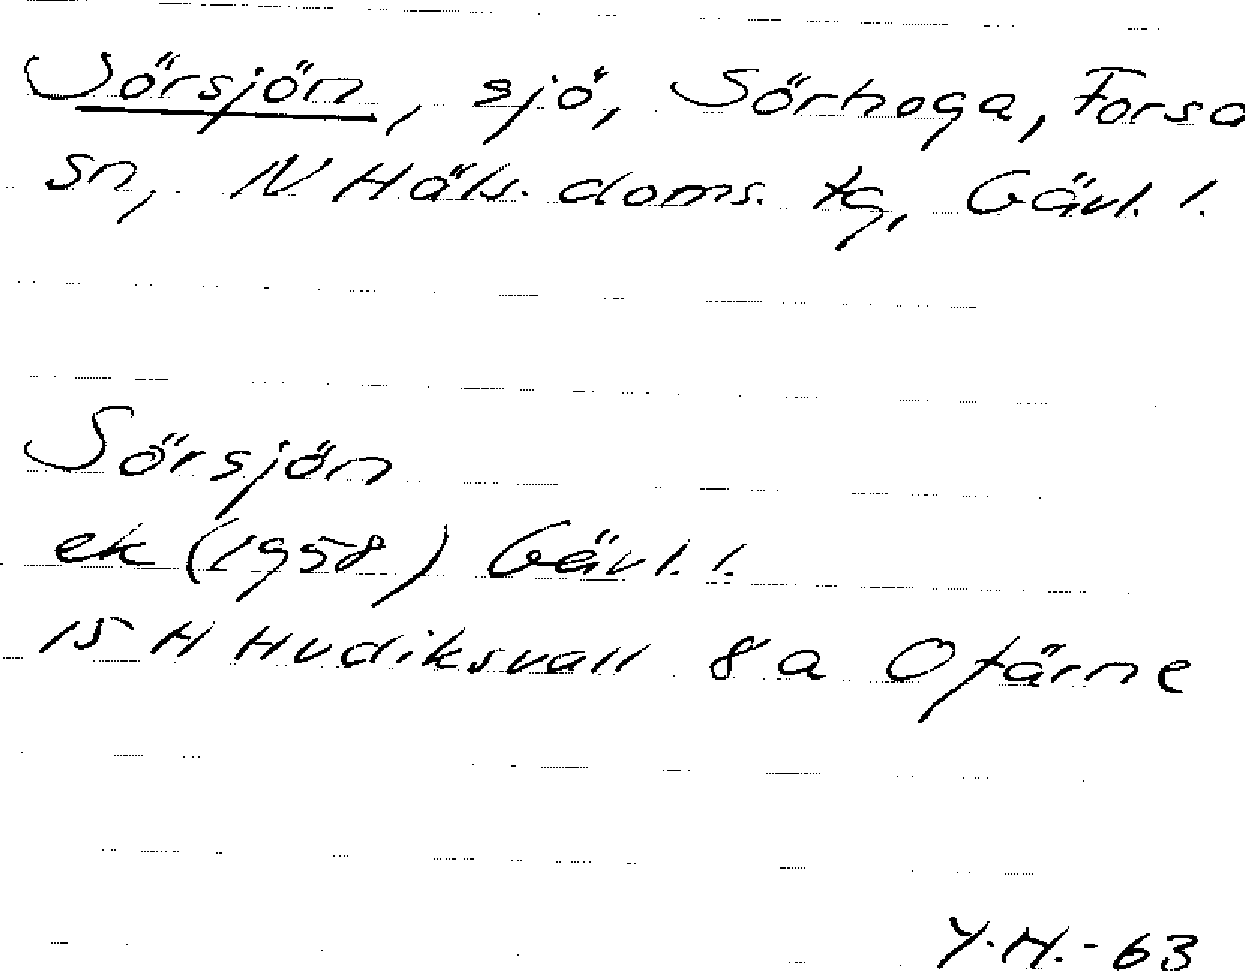 Sörsjön, sjö, Sörhoga, Forsa
sn, N. Häls. doms. tg, Gävl. l.
Sörsjön
ek (1958) Gävl. l.
15 H Hudiksvall 8 a Ofärne
Y.H.-63